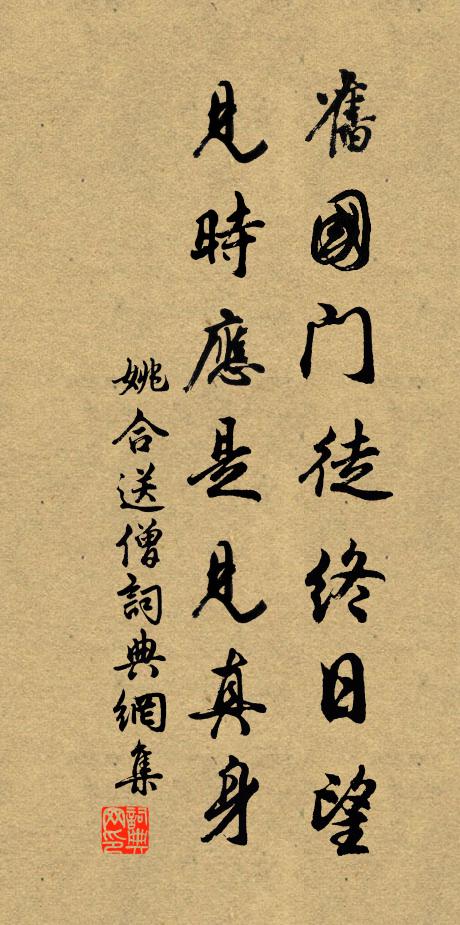 舊國門徒終日望
見時應是見真身
姚合送僧詞典網集
詞典網印